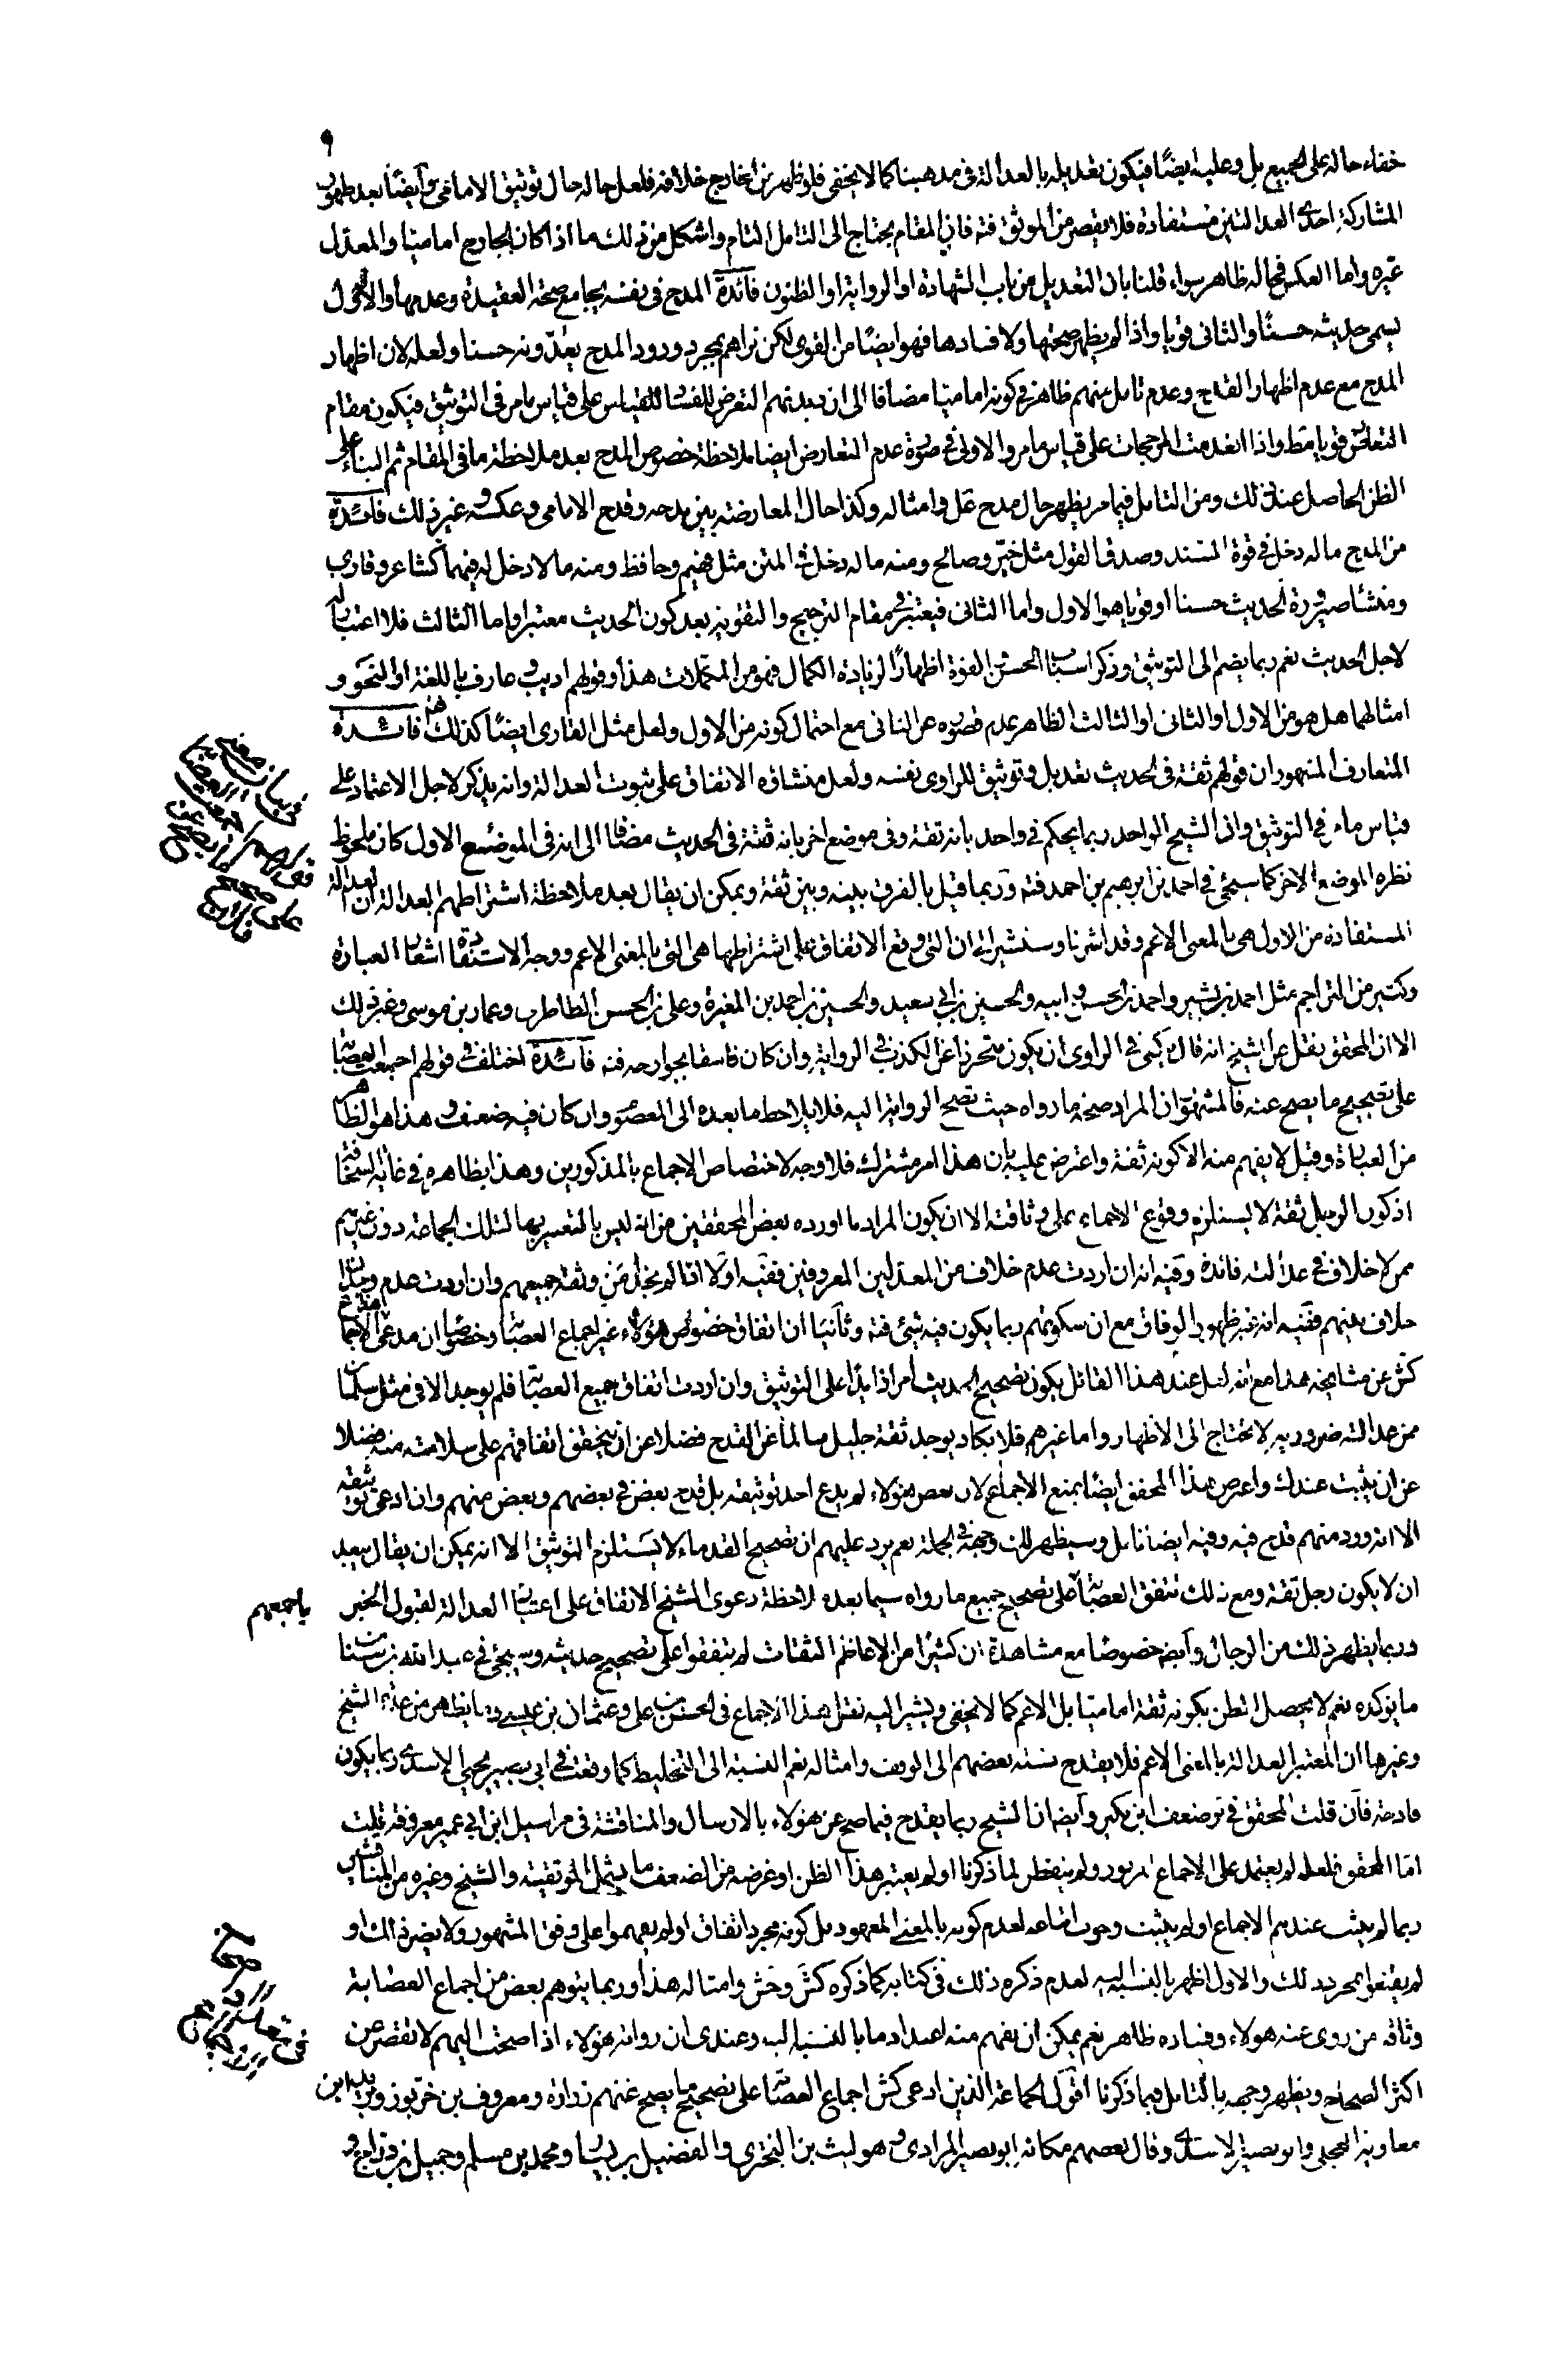 ٩
خفاء حاله على الجميع بل وعليه ايضًا فيكون تعديله بالعدالة فى مذهبنا كما لا يخفى فلو ظهر من الخارج خلافه فلعل حاله حال توثيق الامامى وايضًا بعد ظهور
المشاركة احدى العدالتين مستفادة فلا يقصر من الموثق فته فان المقام يحتاج الى التامل التام واشكل من ذلك ما اذا كان الجارح اماميا والمعدل
غيره واما العكس فحاله ظاهر سواء قلنا بان التعديل من باب الشهادة او الرواية او الظنون فائدة المدح فى نفسه يجامع صحة العقيدة وعدمها والاول
يسمى حديثه حسنًا والثانى قويا واذا لم يظهر صحتها ولا فسادها فهو ايضًا من القوى لكن نراهم بمجرد ورود المدح يعدّونه حسنا ولعله لان اظهار
المدح مع عدم اظهار القدح وعدم تامل منهم ظاهر فى كونه اماميا مضافا الى ان ديدنهم التعرض للفساد للقياس على قياس ما مر فى التوثيق فيكون مقام
التعارض قويا مط واذا انعدمت المرجحات على قياس ما مر والاولى فى صورة عدم التعارض ايضا ملاحظة خصوص المدح بعد ملاحظة ما فى المقام ثم البناء على
الظن الحاصل عند ذلك ومن التامل فيما مر يظهر حال مدح عل وامثاله وكذا حال المعارضة بين مدحه وقدح الامامى وعكسه وغير ذلك فائدة
من المدح ما له دخل فى قوة السند وصدق القول مثل خيّر وصالح ومنه ما له دخل فى المتن مثل فهيم وحافظ ومنه ما لا دخل له فيهما كشاعر وقارى
ومنشاء صيرورة الحديث حسنا او قويا هو الاول واما الثانى فيعتبر فى مقام الترجيح والتقوية بعد كون الحديث معتبرا واما الثالث فلا اعتبار له
لاجل الحديث نعم ربما يضم الى التوثيق وذكر اسباب الحسن والقوة اظهارًا لزيادة الكمال فهو من المكملات هذا وقولهم اديب و عارف باللغة او النحو و
امثالهما هل هو من الاول او الثانى او الثالث الظاهر عدم قصوره عن الثانى مع احتمال كونه من الاول ولعل مثل القارى ايضًا كذلك فتم فائدة
المتعارف المشهور ان قولهم ثقة فى الحديث تعديل وتوثيق للراوى نفسه ولعل منشاؤه الاتفاق على ثبوت العدالة وانه يذكر لاجل الاعتماد على
قياس ماء فى التوثيق وان الشيخ الواحد ربما يحكم فى واحد بانه ثقة وفى موضع اخر بانه ثقة فى الحديث مضافا الى انه فى الموضع الاول كان ملحوظ
نظره الموضع الاخر كما سيجئ فى احمد بن ابرهيم بن احمد فته وربما قيل بالفرق بينه وبين ثقة ويمكن ان يقال بعد ملاحظة اشتراطهم العدالة ان العدالة
المستفادة من الاول هى بالمعنى الاعم وقد اشرنا وسنشير الى ان التى وقع الاتفاق على اشتراطها هى التى بالمعنى الاعم ووجه الاستفادة اشعار العبارة
وكثير من التراجم مثل احمد بن بشير واحمد بن الحسن وابيه والحسين بن ابى سعيد والحسين بن احمد بن المغيرة وعلى بن الحسن الطاطرى وعمار بن موسى وغير ذلك
الا ان المحقق نقل عن الشيخ انه قال يكفى فى الراوى ان يكون متحرزا عن الكذب فى الرواية وان كان فاسقا بجوارحه فته فائدة اختلف فى قولهم اجمعت العصابة
على تصحيح ما يصح عنه فالمشهور ان المراد صحة ما رواه حيث تصح الرواية اليه فلا يلاحظ ما بعده الى المعصوم وان كان فيه ضعف و هذا هو الظاهر
من العبارة وقيل لا يفهم منه الا كونه ثقة واعترض عليه بان هذا امر مشترك فلا وجه لاختصاص الاجماع بالمذكورين وهذا بظاهره فى غاية السخافة
اذ كون الرجل ثقة لا يستلزم وقوع الاجماع على وثاقته الا ان يكون المراد ما اورده بعض المحققين من انه ليس بالتعبير بها لتلك الجماعة دون غيرهم
ممن لا خلاف فى عدالته فائدة وفيه انه ان اردت عدم خلاف من المعدلين المعروفين ففيه اولا انا لم نجد من وثقه جميعهم وان اردت عدم وجدان
خلاف منهم ففيه انه غير ظهور الوفاق مع ان سكوتهم ربما يكون فيه شئ فته وثانيا ان اتفاق خصوص هؤلاء غير اجماع العصابة وخصوصا ان مدعى هذا الاجماع
كش عن مشايخه هذا مع انه لعل عند هذا القائل يكون تصحيح الحديث امرا زايدا على التوثيق وان اردت اتفاق جميع العصابة فلم يوجد الا فى مثل سلمان
ممن عدالته ضرورية لا تحتاج الى الاظهار واما غيرهم فلا يكاد يوجد ثقة جليل سالما عن القدح فضلا عن ان يتحقق اتفاقهم على سلامته منه فضلا
عن ان يثبت عندك واعترض هذا المحقق ايضًا بمنع الاجماع لان بعض هؤلاء لم يدع احد توثيقه بل قدح بعض فى بعضهم وبعض منهم وان ادعى توثيقه
الا انه ورد منهم قدح فيه وفيه ايضا تامل وسيظهر لك وجهه فى الجملة نعم يرد عليهم ان تصحيح القدماء لا يستلزم التوثيق الا انه يمكن ان يقال يبعد
ان لا يكون رجل ثقة ومع ذلك تتفق العصابة على تصحيح جميع ما رواه سيما بعد ملاحظة دعوى الشيخ الاتفاق على اعتبار العدالة لقبول الخبر
باجمعهم
وربما يظهر ذلك من الرجال وايضا خصوصا مع مشاهدة ان كثيرًا من الاعاظم الثقات لم يتفقوا على تصحيح حديثه وسيجئ فى عبد الله بن سنان
ما يؤكده نعم لا يحصل الظن بكونه ثقة اماميا بل الاعم كما لا يخفى ويشير اليه نقل هذا الاجماع فى الحسن بن على وعثمان بن عيسى وما يظهر من عدة الشيخ
وغيرها ان المعتبر العدالة بالمعنى الاعم فلا يقدح نسبة بعضهم الى الوقف وامثاله نعم النسبة الى التخليط كما وقعت فى ابى بصير يحيى الاسدى ربما يكون
قادحة فان قلت المحقق فى تر ضعف ابن بكير وايضا ان الشيخ ربما يقدح فيما صح عن هؤلاء بالارسال والمناقشة فى مراسيل ابن ابى عمير معروفة قلت
اما المحقق فلعله لم يعتمد على الاجماع المزبور ولم يتفطن لما ذكرنا او لم يعتبر هذا الظن او غرضه من الضعف ما يشمل الموثقية والشيخ وغيره من المناقشين
ربما لم يثبت عندهم الاجماع او لم يثبت وجوب اتباعه لعدم كونه بالمعنى المعهود بل كونه مجرد اتفاق او لم يفهموا على وفق المشهور ولا يضر ذلك او
لم يقنعوا بمجرد ذلك والاول اظهر بالنسبة اليه لعدم ذكره ذلك فى كتابه كما ذكره كش وجش وامثاله هذا وربما يتوهم بعض من اجماع العصابة
وثاقة من روى عنه هؤلاء وفساده ظاهر نعم يمكن ان يفهم منه اعتداد ما بالنسبة اليه وعندى ان رواية هؤلاء اذا صحت اليهم لا تقصر عن
اكثر الصحاح ويظهر وجهه بالتامل فيما ذكرنا اقول الجماعة الذين ادعى كش اجماع العصابة على تصحيح ما يصح عنهم زرارة ومعروف بن خربوز وبريد ابن
معاوية العجلى وابو بصير الاسدى وقال بعضهم مكانه ابو بصير المرادى و هو ليث بن البخترى والفضيل بن يسار ومحمد بن مسلم وجميل بن دراج و